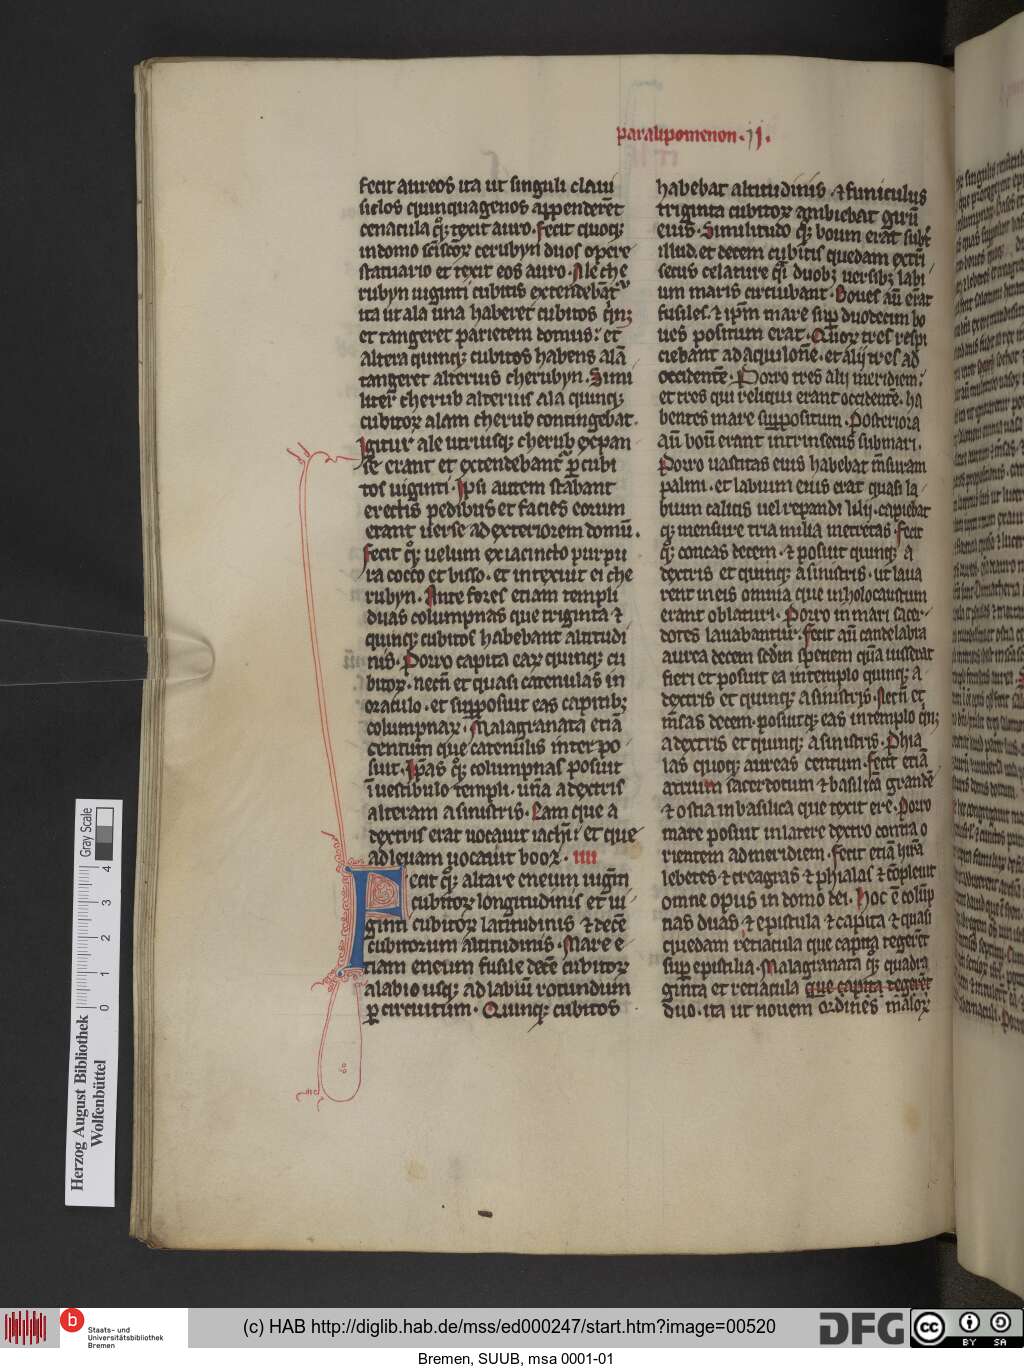 paralipomenon · ij ·
fecit aureos ita ut singuli claui
siclos quinquagenos appenderēt
cenacula qͦꝫ texit auro · Fecit quoqꝫ
in domo scī scōꝝ cerubyn duos opere
statuario et texit eos auro · Ale che
rubyn uiginti cubitis extendebāt᷑
ita ut ala una haberet cubitos qīnꝫ
et tangeret parietem domus : et
altera quinqꝫ cubitos habens alā
tangeret alterius cherubyn . Simi
liter cherub alterius ala quinqꝫ
cubitoꝝ alam cherub contingebat .
Igitur ale utriusqꝫ cherub expan
se erant et extendebant᷑ ꝑ cubi
tos uiginti · Ipsi autem stabant
erectis pedibus et facies eorum
erant uerse ad exteriorem domū .
Fecit qͦꝫ uelum ex iacincto purpu
ra cocco et bisso · et intexuit ei che
rubyn . Ante fores etiam templi
duas columpnas que triginta ⁊
quinqꝫ cubitos habebant altitudi
nis . Porro capita eaꝝ quinqꝫ cu
bitoꝝ . necn̄ et quasi catenulas in
oraculo . et supposuit eas capitibꝫ
columpnaꝝ . Malagranata etiā
centum que catenulis interpo
suit . Ipsas qͦꝫ columpnas posuit
ī uestibulo templi . una a dextris
alteram a sinistris . Eam que a
dextris erat uocauit iachī et que
ad leuam uocauit booz · IIII
Fecit qͦꝫ altare eneum uigīn
cubitoꝝ longitudinis et ui
ginti cubitoꝝ latitudinis ⁊ decē
cubitorum altitudinis . Mare e
tiam eneum fusile decē cubitoꝝ
a labio usqꝫ ad labiū rotundum
ꝑ circuitum . Quinqꝫ cubitos
habebat altitudinis . ⁊ funiculus
triginta cubitoꝝ ambiebat girū
eius . Similitudo qͦꝫ boum erat subt᷑
illud . et decem cubitis quedam extͥ
secus celature qͣi duobꝫ uersibꝫ labi
um maris circuibant . Boues aū erāt
fusiles . ⁊ ipm̄ mare suꝑ duodecim bo
ues positum erat . Quoꝝ tres respi
ciebant ad aquilonē . et alij tres ad
occidentē . Porro tres alij meridiem .
et tres qui reliqui erant occidentē . ha
bentes mare suppositum . Posteriora
aū boū erant intrinsecus sub mari .
Porro uastitas eius habebat mēsuram
palmi . et labium eius erat quasi la
bium calicis uel repandi lilij . capiebat
qꝫ mensure tria milia metretas . Fecit
qͦꝫ concas decem . ⁊ posuit quinqꝫ a
dextris et quinqꝫ a sinistris . ut laua
rent in eis omnia que in holocaustum
erant oblaturi . Porro in mari sacer
dotes lauabantur . Fecit aū candelabra
aurea decem scd̄m speciem qūa iusserat
fieri et posuit ea in templo quinqꝫ a
dextris et quinqꝫ a sinistris . Necn̄ et
mēsas decem . posuitqꝫ eas in templo qīnꝫ
a dextris et quinqꝫ a sinistris . Phia
las quoqꝫ aureas centum . Fecit etiā
atrium sacerdotum ⁊ basilicā grandē
⁊ ostia in basilica que texit ere . Porro
mare posuit in latere dextro contra o
rientem ad meridiem . Fecit etiā hirā
lebetes ⁊ creagras ⁊ phialas ⁊ cōpleuit
omne opus in domo dei . Hoc ē colūp
nas duas ⁊ epistula ⁊ capita ⁊ quasi
quedam retiacula que capita tegerēt
suꝑ epistilia . Malagranata qͦꝫ quadra
ginta et retiacula que capita tegerēt
duo . ita ut nouem ordines maloꝝ
Herzog August Bibliothek
Wolfenbüttel
Gray Scale
0 1 2 3 4
b
Staats- und
Universitätsbibliothek
Bremen
(c) HAB http://diglib.hab.de/mss/ed000247/start.htm?image=00520
DFG
cc
BY SA
Bremen, SUUB, msa 0001-01